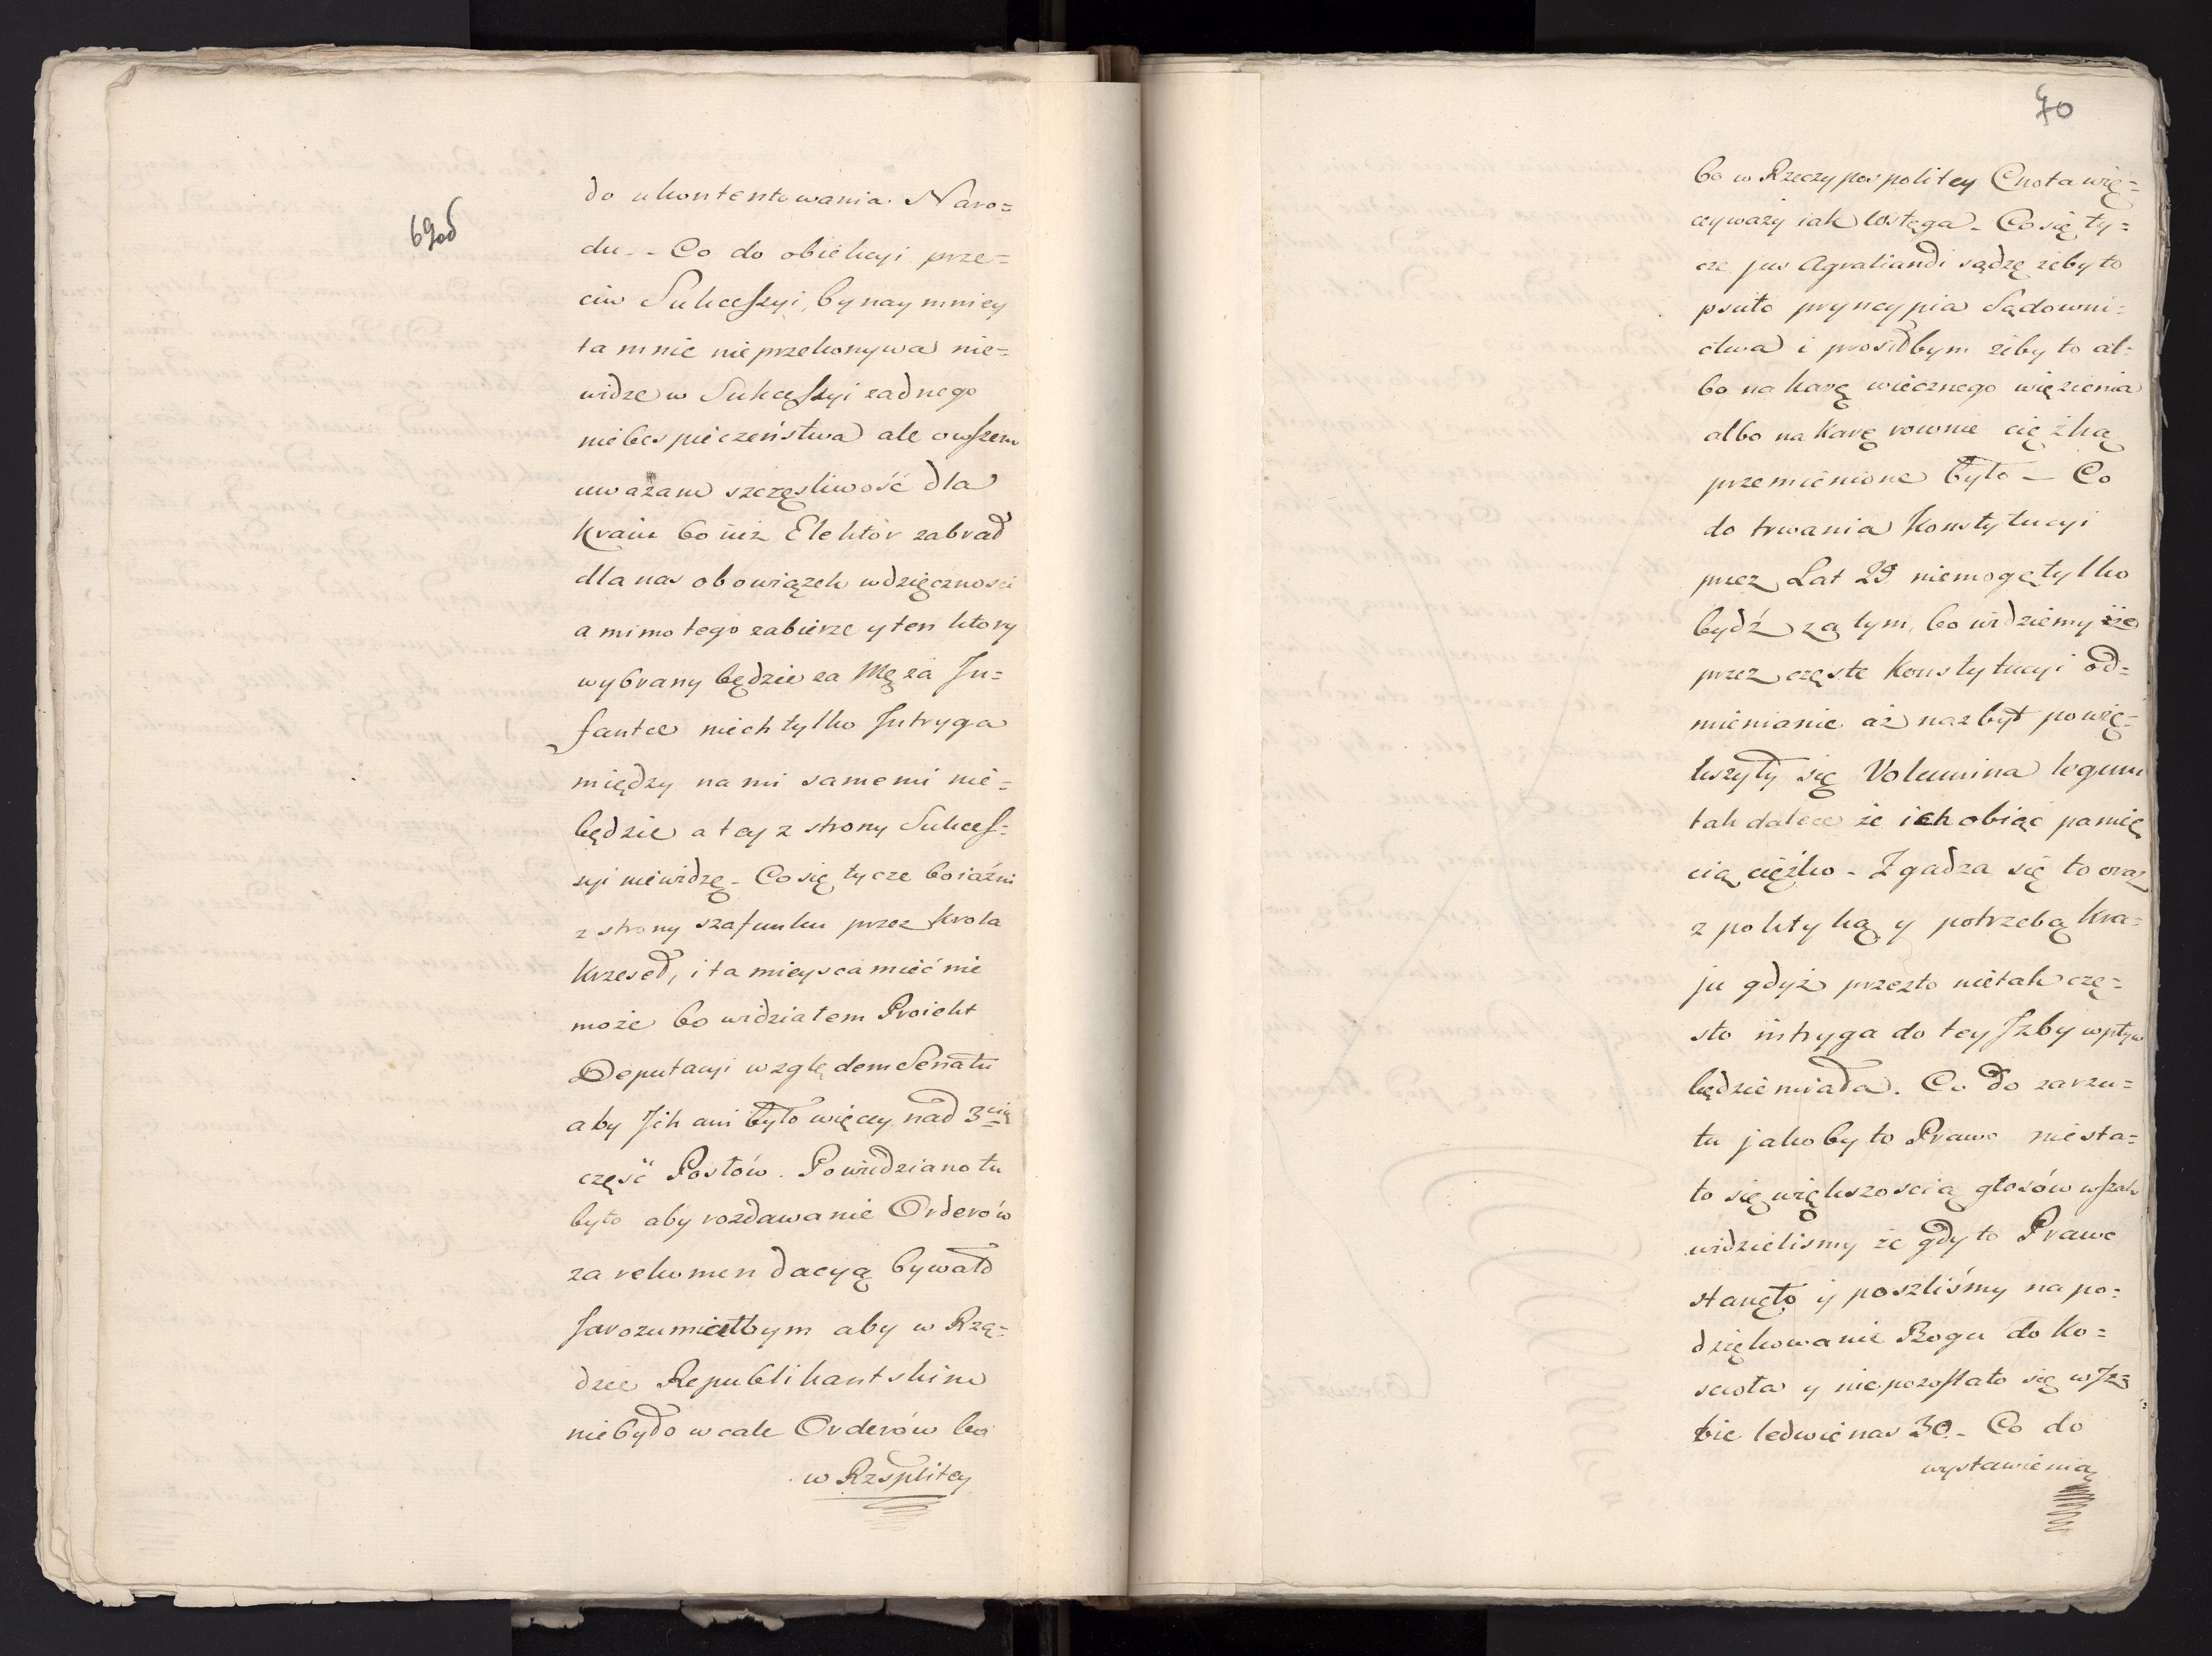 69об
do ukontentowania Naro=
du - - Co do obiekcyi prze=
ciw Sukceſsyi, by naymniey
ta mnie nie przekonywa nie=
widze w Sukceſsyi żadnego
niebespieczeństwa ale owſzem
uważam szczęsliwość dla
Kraiu bo iuż Elektór zabrał
dla nas obowiązek wdzięcznosci
a mimo tego zabierze y ten ktory
wybrany będzie za Męża In=
fantce niech tylko Intryga
między nami samemi nie=
będzie a tey z strony Sukceſ=
syi niewidzę - Co się tycze boiaźni
z strony szafunku przez Krola
Krzeseł, i ta mieysca mieć nie
może bo widziałem Proiekt
Deputacyi względem Senatu
aby Ich ani było więcey nad 3cią
część Posłów. Powiedziano tu
było aby rozdawanie Orderów
za rekomendacyą bywało
Ja rozumiałbym aby w Rzą=
dzie Republikantskim
niebyło wcale Orderów bo
w Rzsplitey
70
bo w Rzeczypospolitey Cnota wię=
cey waży iak wstęga - Co się ty=
cze jus Agratiandi sądzę żeby to
psuło pryncypia Sądowni=
ctwa i prosiłbym żeby to al=
bo na karę wiecznego więzienia
albo na Karę rownie cięźką
przemienione było - Co
do trwania Konstytucyi
przez Lat 25 niemogę tylko
bydź za tym, bo widziemy że
przez częste Konstytucyi od=
mienianie aż nazbyt powię=
kszyły się Volumina legum
tak dalece że ich obiąć pamię
cią cięźko - Zgadza się to oraz
z polityką y potrzebą Kra=
ju gdyż przezto nietak czę=
sto intryga do tey Izby wpływ
będzie miała. Co do zarzu=
tu jakoby to Prawo niesta=
ło się większoscią głosów wſzak
widzielismy że gdy to Prawo
stanęło y poszliśmy na po=
dziękowanie Bogu do Ko=
scioła y nie pozoſtało się w Iz=
bie ledwie nas 30 - Co do
wystawienia